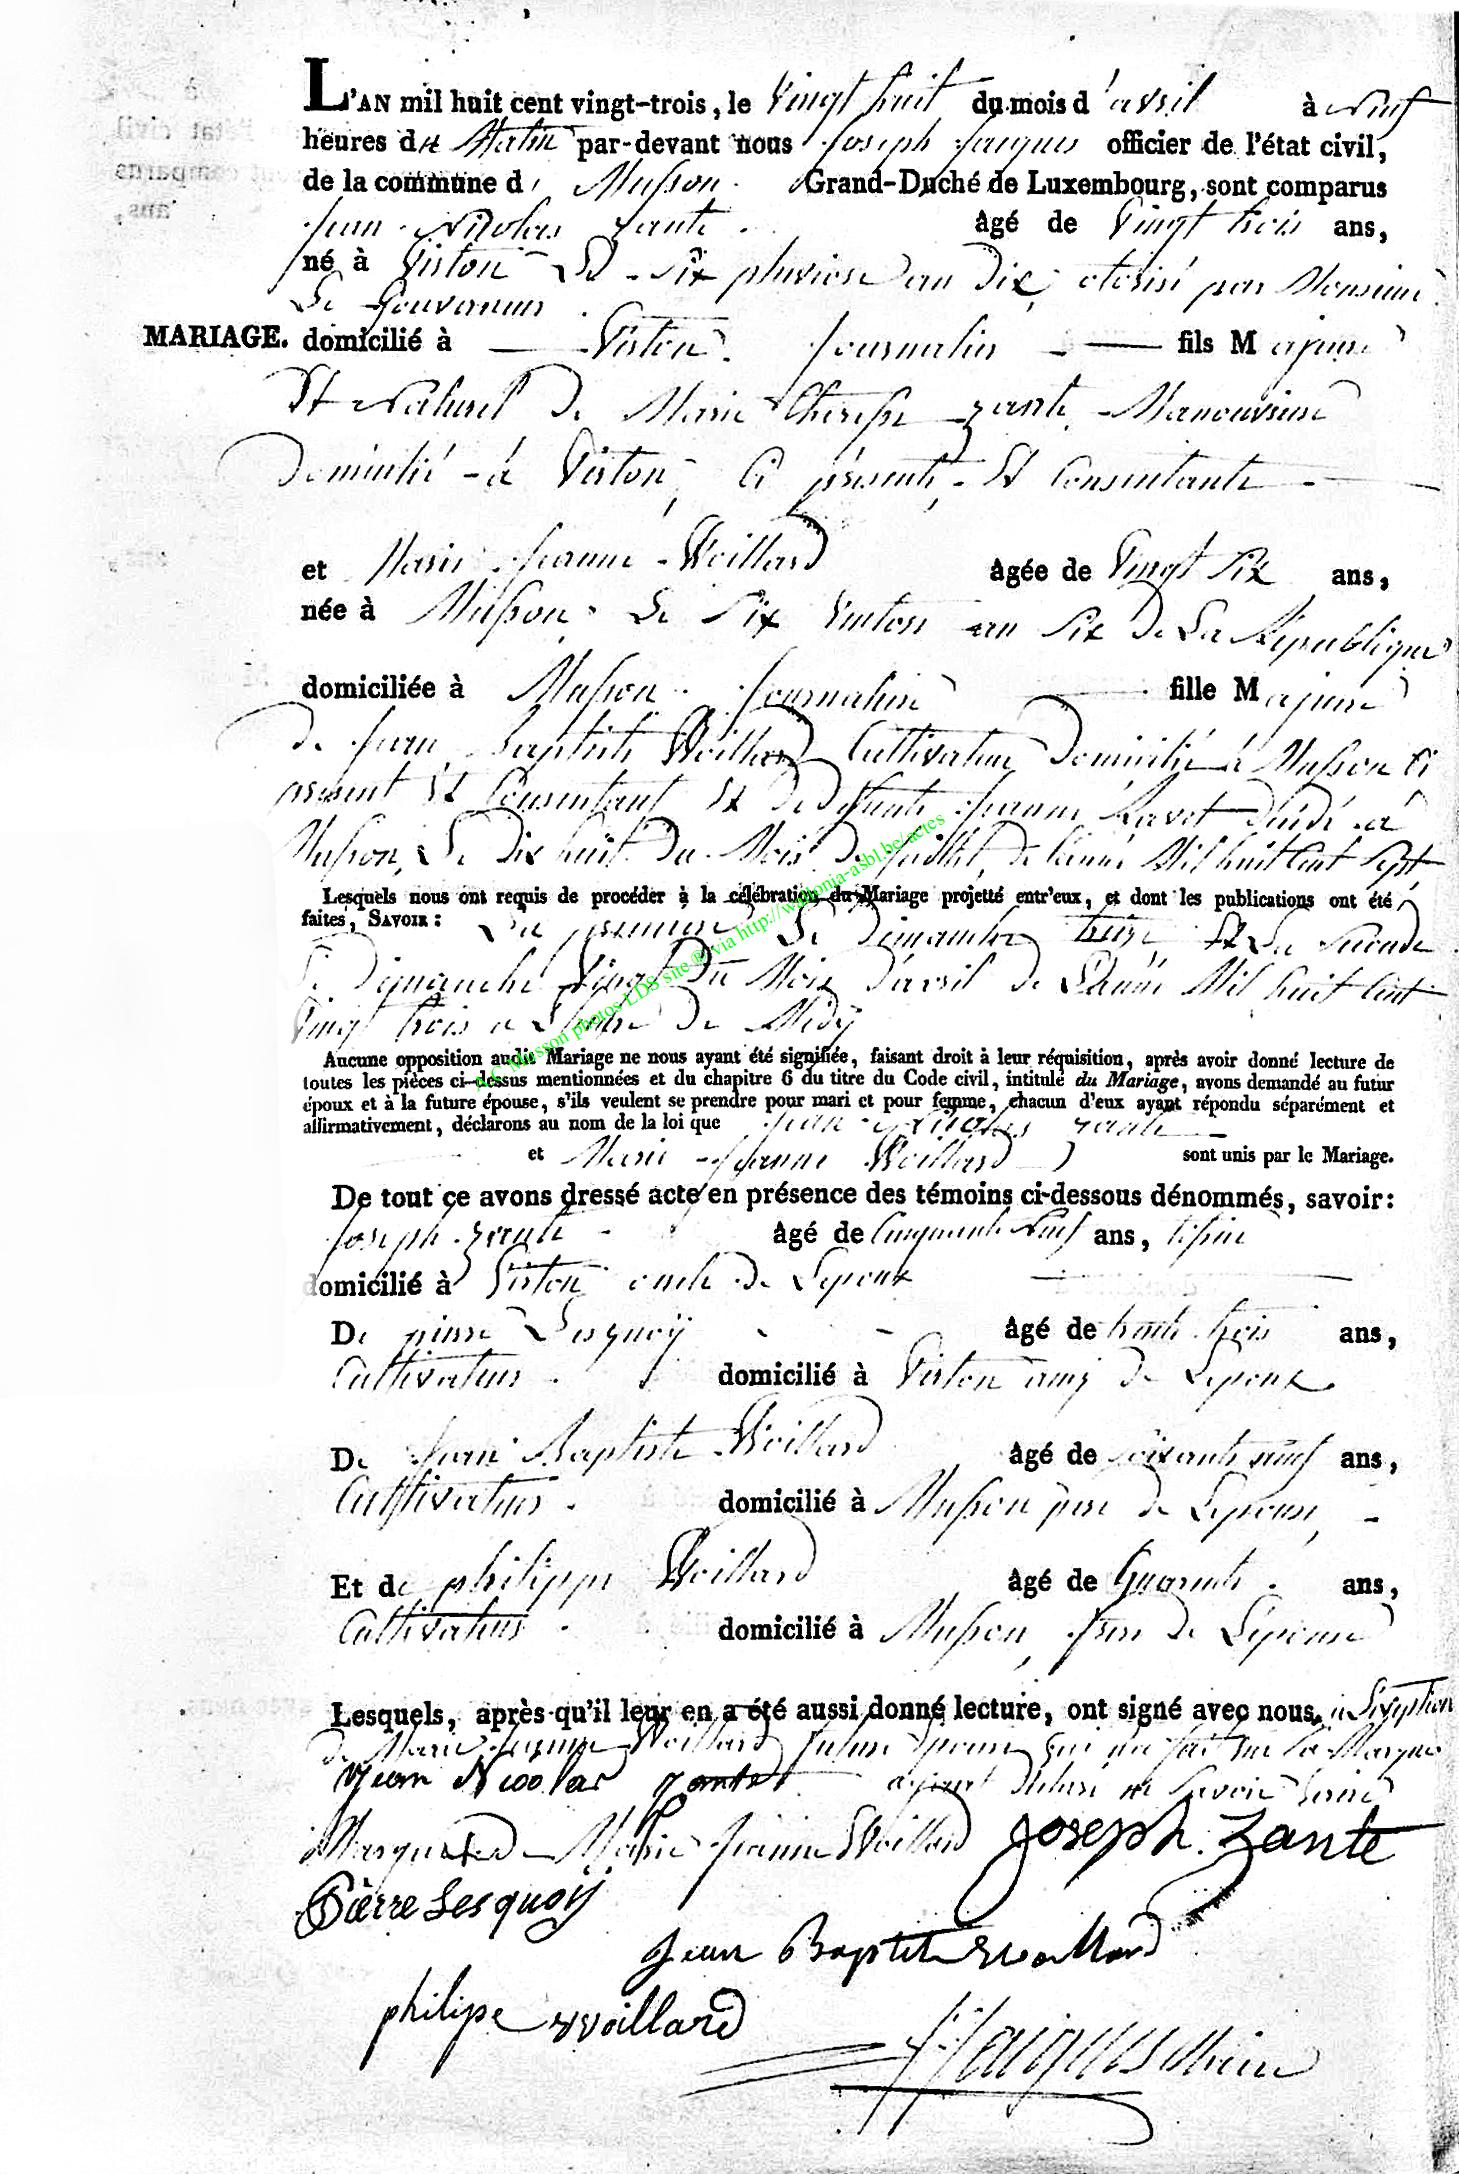 L'AN mil huit cent vingt-trois, le Vingt huit du mois d'avril à Neuf
heures du Matin par-devant nous Joseph Jacques officier de l'état civil,
de la commune de Musson Grand-Duché de Luxembourg, sont comparus
Jean Nicolas Zante âgé de Vingt trois ans,
né à Virton Le Six pluviose an Dix, otorisé par Monsieur
Le Gouverneur
MARIAGE. domicilié à Virton Journalier fils Majeure
Et Naturel De Marie Therese Zante Manouvriere
Domicilié à Virton, Ci présente, Et Consentante
et Marie Jeanne Woillard âgée de Vingt Six ans,
née à Musson Le Six Ventose an Six De La République
domiciliée à Musson Journaliere fille Majeure
De Jean Baptiste Woillard Cultivateur Domicilié à Musson Ci
present Et Consentant Et De Defunte Jeanne Ravet Décédé à
Musson, Le Dix huit Du Mois De Juillet, De L'année Mil huit Cent Sept,
Lesquels nous ont requis de procéder à la célébration du Mariage projetté entr'eux, et dont les publications ont été
faites, SAVOIR: La premiere Le Dimanche treize Et La Seconde
Le Dimanche Vingt Du Mois D'avril De L'année Mil huit Cent
Vingt trois a L'heure De Midy
Aucune opposition audit Mariage ne nous ayant été signifiée, faisant droit à leur réquisition, après avoir donné lecture de
toutes les pièces ci-dessus mentionnées et du chapitre 6 du titre du Code civil, intitulé du Mariage, avons demandé au futur
époux et à la future épouse, s'ils veulent se prendre pour mari et pour femme, chacun d'eux ayant répondu séparément et
affirmativement, déclarons au nom de la loi que Jean Nicolas Zante
et Marie Jeanne Woillard sont unis par le Mariage.
De tout ce avons dressé acte en présence des témoins ci-dessous dénommés, savoir:
Joseph Zante âgé de Cinquante Neuf ans,
domicilié à Virton oncle De Lepoux
De pierre Lesquoÿ âgé de trente trois ans,
Cultivateur domicilié à Virton amy De Lepoux
De Jean Baptiste Woillard âgé de soixante neuf ans,
Cultivateur domicilié à Musson pere de Lepouse,
Et de philippe Woillard âgé de Quarente ans,
Cultivateur domicilié à Musson, frere De Lépouse
Lesquels, après qu'il leur en a été aussi donné lecture, ont signé avec nous, a L'exseption
De Marie Jeanne Woillard future Epouse qui n'a fait que sa Marque
Jean Nicolas Zante ayant Déclaré ne Savoir Ecrire
Marque + De Marie Jeanne Woillard Joseph. Zante
Pierre Lesquoij
Jean Baptiste Woillard
philipe woillard
J Jacques Maire
A.C Musson photos LDS site @ via http://wallonia-asbl.be/actes